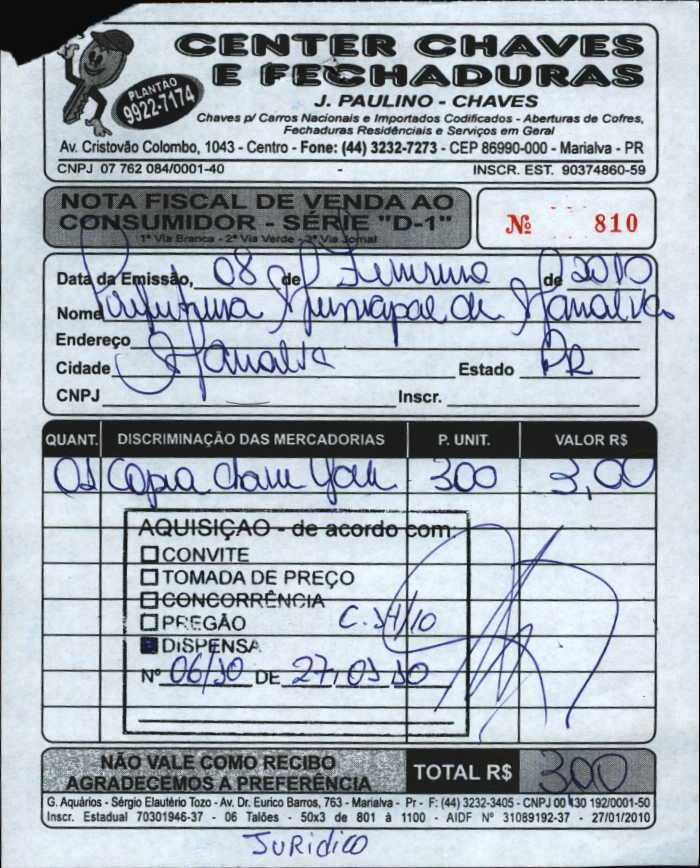 CENTER CHAVES
E FECHADURAS
PLANTÃO
9922-7174
J. PAULINO - CHAVES
Chaves p/ Carros Nacionais e Importados Codificados - Aberturas de Cofres,
Fechaduras Residênciais e Serviços em Geral
Av. Cristovão Colombo, 1043 - Centro - Fone: (44) 3232-7273 - CEP 86990-000 - Marialva - PR
CNPJ 07 762 084/0001-40 - INSCR. EST. 90374860-59
NOTA FISCAL DE VENDA AO
CONSUMIDOR - SÉRIE "D-1"
1ª Via Branca - 2ª Via Verde - 3ª Via Jornal
Nº 810
Data da Emissão, 08 de Fevereiro de 2010
Nome Prefeitura Municipal de Marialva
Endereço
Cidade Marialva Estado PR
CNPJ Inscr.
QUANT. DISCRIMINAÇÃO DAS MERCADORIAS P. UNIT. VALOR R$
01 Copia chave Yale 300 3,00
AQUISIÇÃO - de acordo com:
CONVITE
TOMADA DE PREÇO
CONCORRÊNCIA
PREGÃO
DISPENSA
Nº 06/10 DE 27/01/10
NÃO VALE COMO RECIBO
AGRADECEMOS A PREFERÊNCIA
TOTAL R$ 300
G. Aquários - Sérgio Elautério Tozo - Av. Dr. Eurico Barros, 763 - Marialva - Pr - F: (44) 3232-3405 - CNPJ 00 130 192/0001-50
Inscr. Estadual 70301946-37 - 06 Talões - 50x3 de 801 à 1100 - AIDF Nº 31089192-37 - 27/01/2010
JURidico